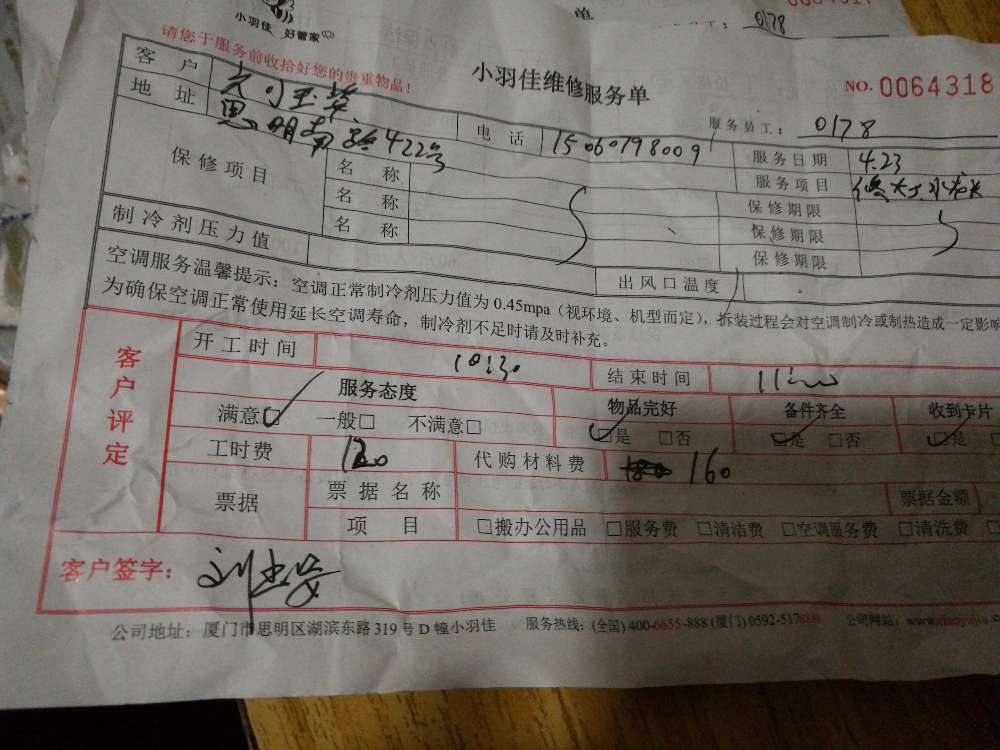 小羽佳 好管家
单
0178
请您于服务前收拾好您的贵重物品!
小羽佳维修服务单
NO. 0064318
服务员工: 0178
客 户
地 址 思明南路422号
电 话 15060798009
服务日期 4.23
服务项目
保修项目
名 称 保修期限
名 称 保修期限
名 称 保修期限
制冷剂压力值
出风口温度
空调服务温馨提示: 空调正常制冷剂压力值为 0.45mpa（视环境、机型而定），拆装过程会对空调制冷或制热造成一定影响
为确保空调正常使用延长空调寿命，制冷剂不足时请及时补充。
客户评定
开工时间 10:30 结束时间 11:00
服务态度 物品完好 备件齐全 收到卡片
满意□ 一般□ 不满意□ □是 □否 □是 □否 □是
工时费 120 代购材料费 160
票据 票据名称 票据金额
项 目 □搬办公用品 □服务费 □清洁费 □空调服务费 □清洗费
客户签字:
公司地址: 厦门市思明区湖滨东路 319 号 D 幢小羽佳 服务热线: (全国) 400-6655-888 (厦门) 0592-517 公司网站: